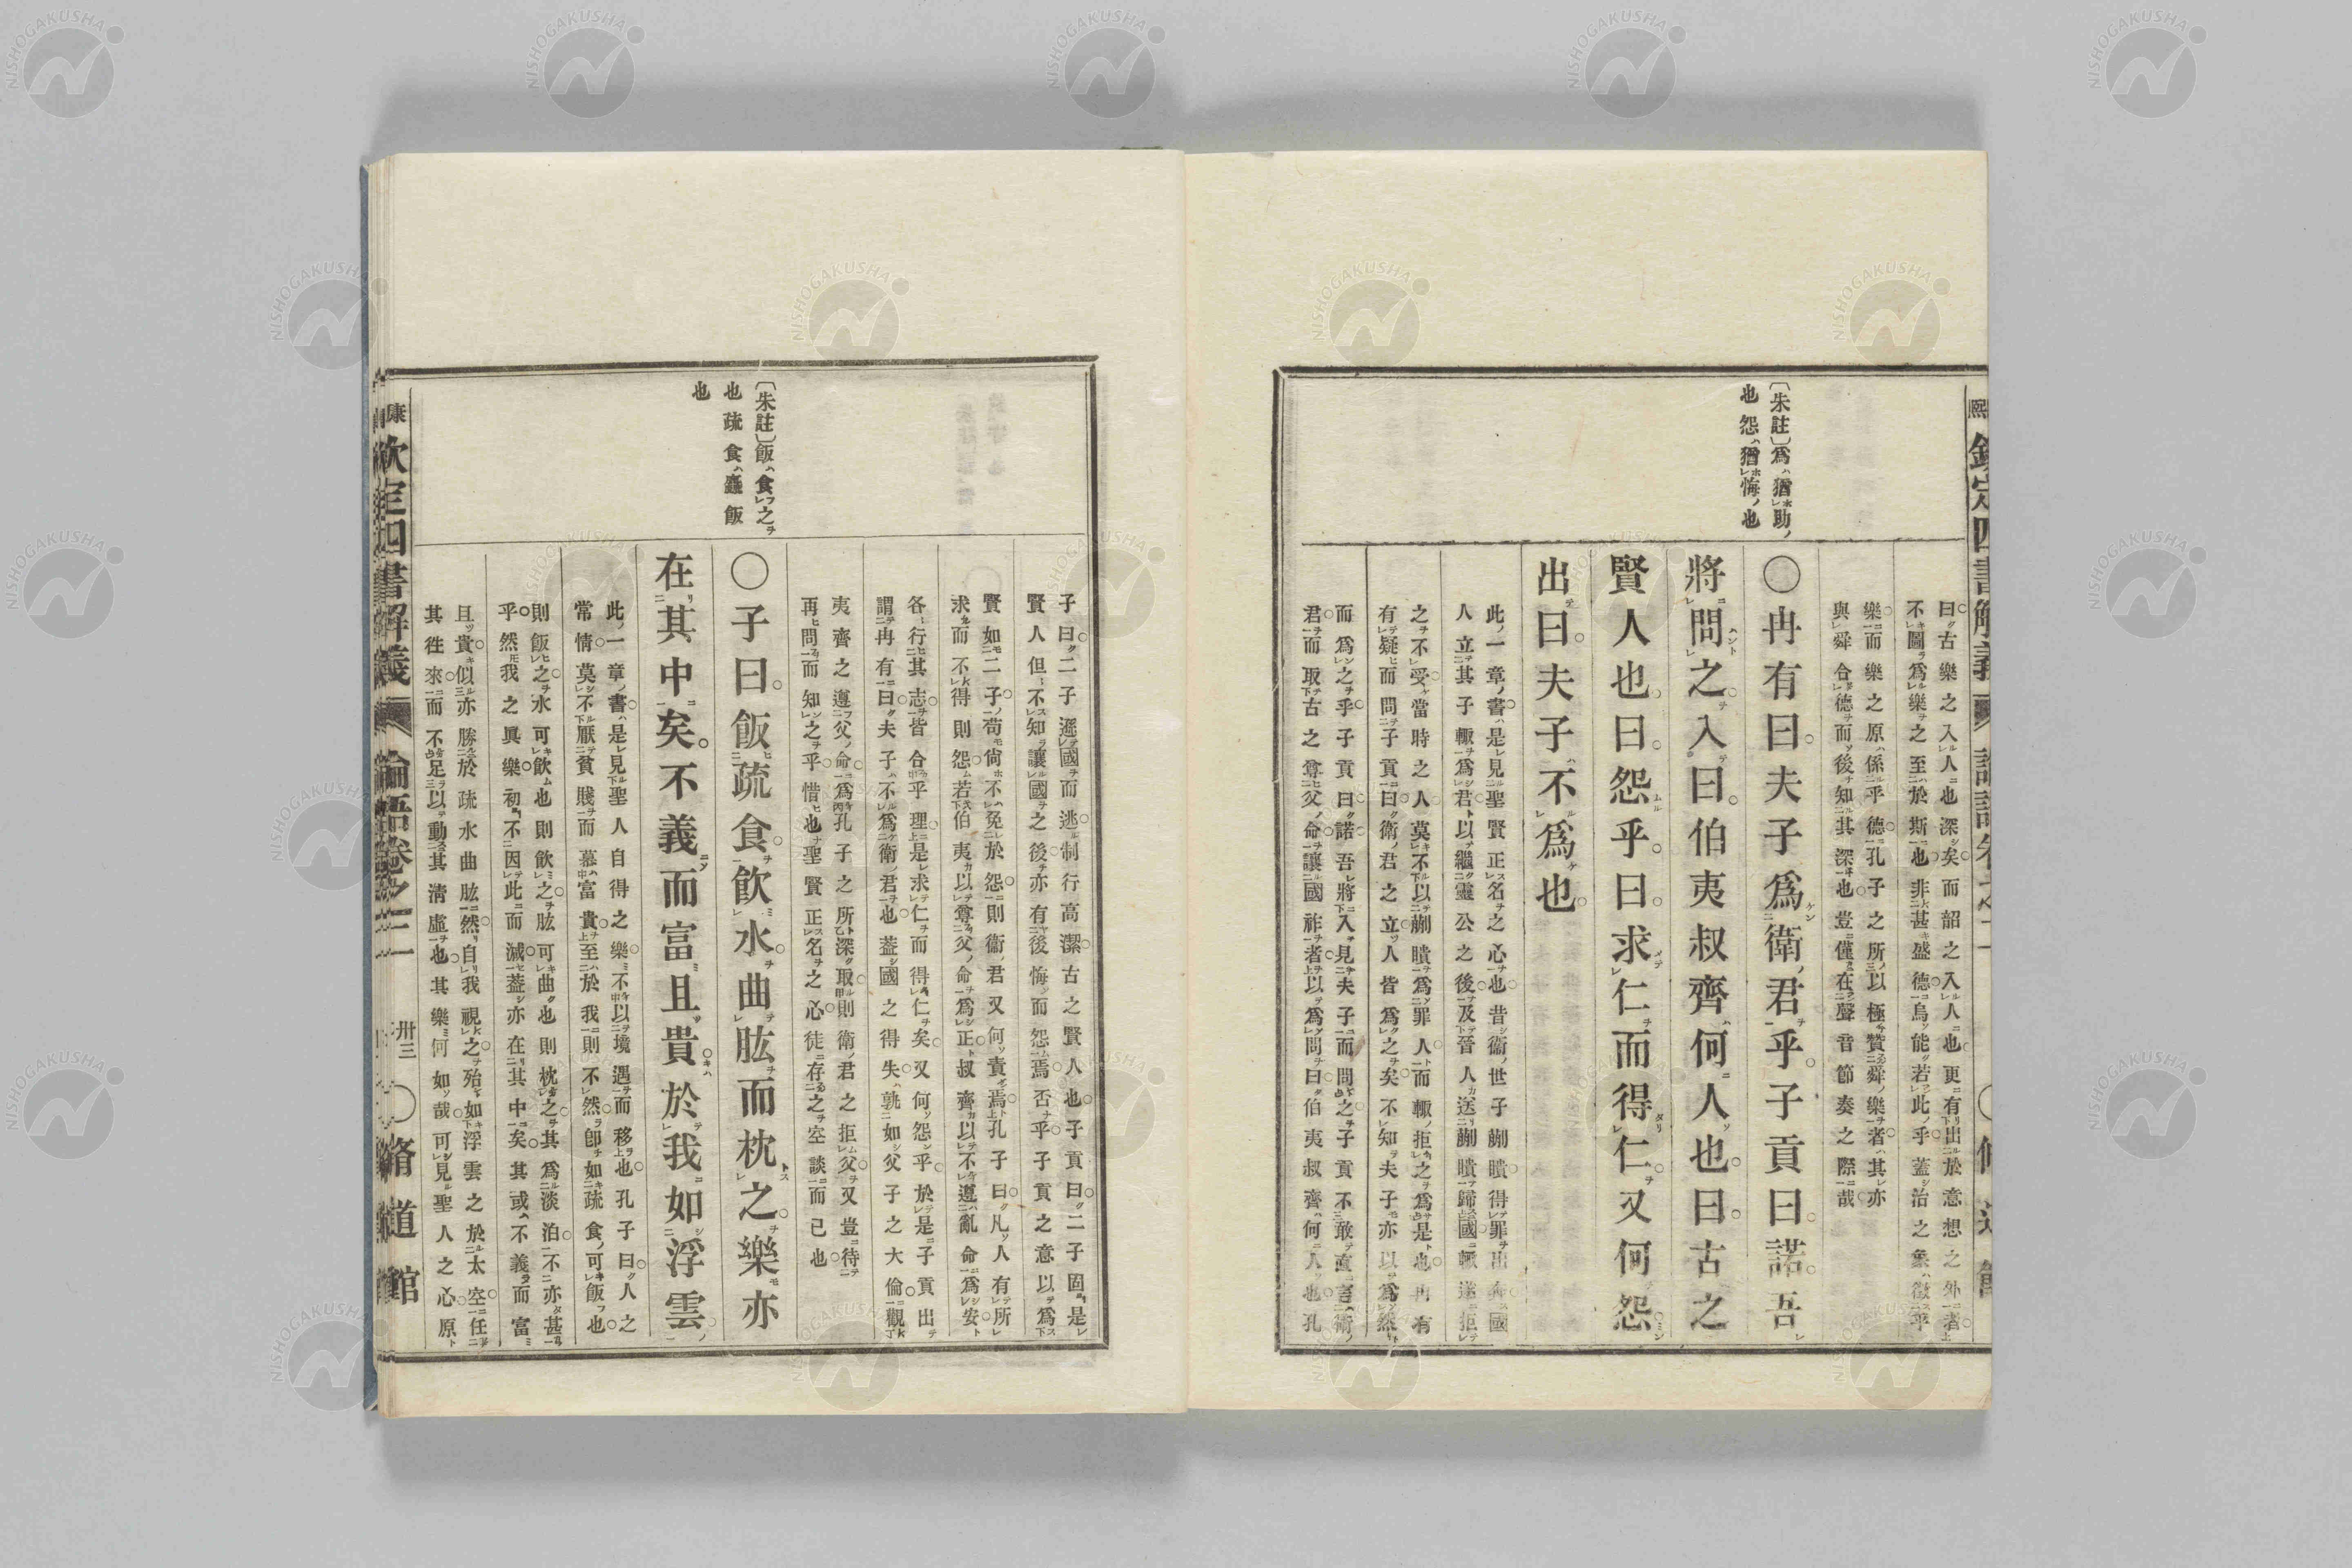 曰古樂之入人也深矣而韶之入人也更有出於意想之外者
不圖爲樂之至於斯也非甚盛德烏能若此乎蓋治之象徵乎
樂而樂之原係乎德孔子之所以極贊舜樂者其亦
與舜合德而後知其深也豈僅在聲音節奏之際哉
〔朱註〕爲猶助
也怨猶悔也
〇冉有曰夫子爲衛君乎子貢曰諾吾
將問之入曰伯夷叔齊何人也曰古之
賢人也曰怨乎曰求仁而得仁又何怨
出曰夫子不爲也
此一章書是見聖賢正名之心也昔衞世子蒯聵得罪出奔國
人立其子輙爲君以繼靈公之後及晉人送蒯聵歸國輙遂拒
之不受當時之人莫不以蒯聵爲罪人而輙拒之爲是也冉有
有疑而問子貢曰衛君之立人皆爲之矣不知夫子亦以爲然
而爲之乎子貢曰諾吾將入見夫子而問之子貢不敢直言衛
君而取古之尊父命讓國祚者以爲問曰伯夷叔齊何人也孔
子曰二子遜國而逃制行高潔古之賢人也子貢曰二子固是
賢人但不知讓國之後亦有後悔而怨焉否乎子貢之意以爲
賢如二子苟尙不免於怨則衞君又何責焉孔子曰凡人有所
求而不得則怨若伯夷以尊父命爲正叔齊以不遵亂命爲安
各行其志皆合乎理是求仁而得仁矣又何怨乎於是子貢出
謂冉有曰夫子不爲衛君也蓋國之得失孰如父子之大倫觀
夷齊之遵父命爲孔子之所深取則衛君之拒父又豈待
再問而知之乎惜也聖賢正名之心徒存之空談而已也
〔朱註〕飯食之
也疏食麤飯
也
〇子曰飯疏食飲水曲肱而枕之樂亦
在其中矣不義而富且貴於我如浮雲
此一章書是見聖人自得之樂不以境遇而移也孔子曰人之
常情莫不厭貧賤而慕富貴至於我則不然卽如疏食可飯也
則飯之水可飲也則飲之肱可曲也則枕之其爲淡泊不亦甚
乎然我之眞樂初不因此而減蓋亦在其中矣其或不義而富
且貴似亦勝於疏水曲肱然自我視之殆如浮雲之於太空任
其徃來而不足以動其淸虛也其樂何如哉可見聖人之心原
欽定四書解義 論語卷之二 卅三 〇脩道館